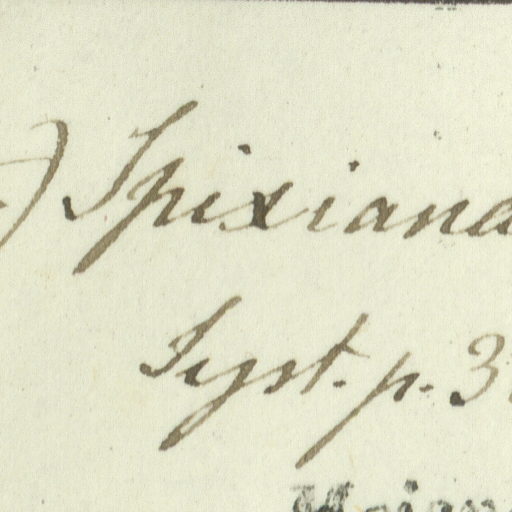 ) Spixiana
Syst. p. 3